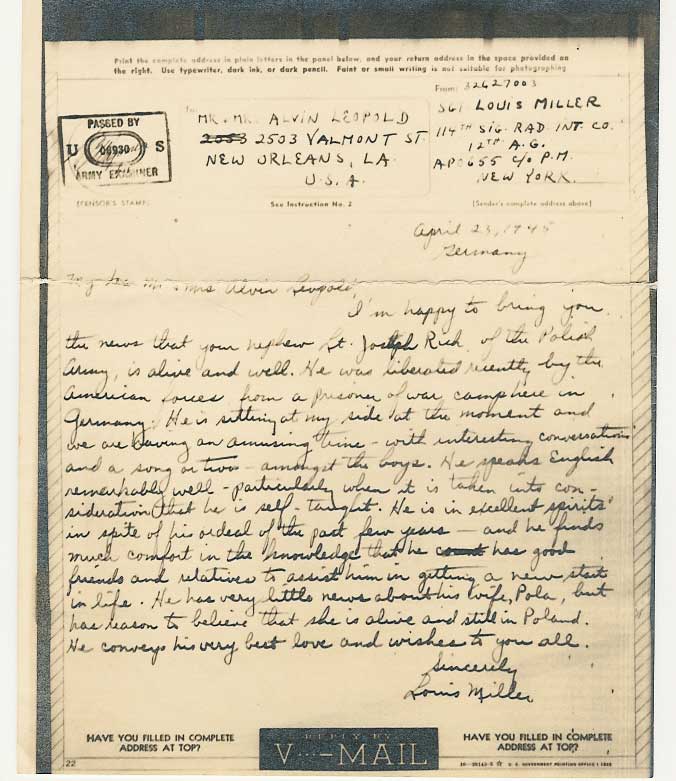 Print the complete address in plain letters in the panel below, and your return address in the space provided on
the right. Use typewriter, dark ink, or dark pencil. Faint or small writing is not suitable for photographing
From: 32427003
SGT. LOUIS MILLER
114TH SIG. RAD. INT. CO.
12TH A.G.
APO 655 C/O P.M.
NEW YORK.
To:
MR. + MR. ALVIN LEOPOLD
2053 2503 VALMONT ST.
NEW ORLEANS, LA.
U.S.A.
PASSED BY
U 06930 S
ARMY EXAMINER
(CENSOR'S STAMP)
See Instruction No. 2
(Sender's complete address above)
April 23, 1945
Germany
My Mr + Mrs Alvin Leopold,
I'm happy to bring you
the news that your nephew Lt. Joseph Rich, of the Polish
Army, is alive and well. He was liberated recently by the
American forces from a prisoner of war camp here in
Germany. He is sitting at my side at the moment and
we are having an amusing time - with interesting conversations
and a song or two - amongst the boys. He speaks English
remarkably well - particularly when it is taken into con-
sideration that he is self-taught. He is in excellent spirits
in spite of his ordeal of the past few years - and he finds
much comfort in the knowledge that he has good
friends and relatives to assist him in getting a new start
in life. He has very little news about his wife, Pola, but
has reason to believe that she is alive and still in Poland.
He conveys his very best love and wishes to you all.
Sincerely
Louis Miller
HAVE YOU FILLED IN COMPLETE
ADDRESS AT TOP?
REPLY BY
V···—MAIL
HAVE YOU FILLED IN COMPLETE
ADDRESS AT TOP?
22
16-28143-5 ☆ U. S. GOVERNMENT PRINTING OFFICE